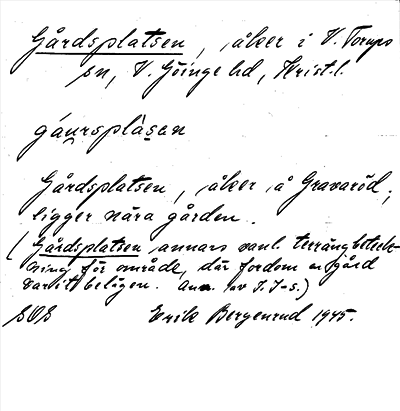 Gårdsplatsen, åker i V. Torups
sn, V. Göinge hd, Krist. l.
gáu̯rsplàsen
Gårdsplatsen, åker å Gravaröd;
ligger nära gården.
(Gårdsplatsen annars vanl. terrängbeteck-
ning för område, där fordom en gård
varit belägen. Anm. av I. I-s.)
SOS Erik Bergenrud 1945.